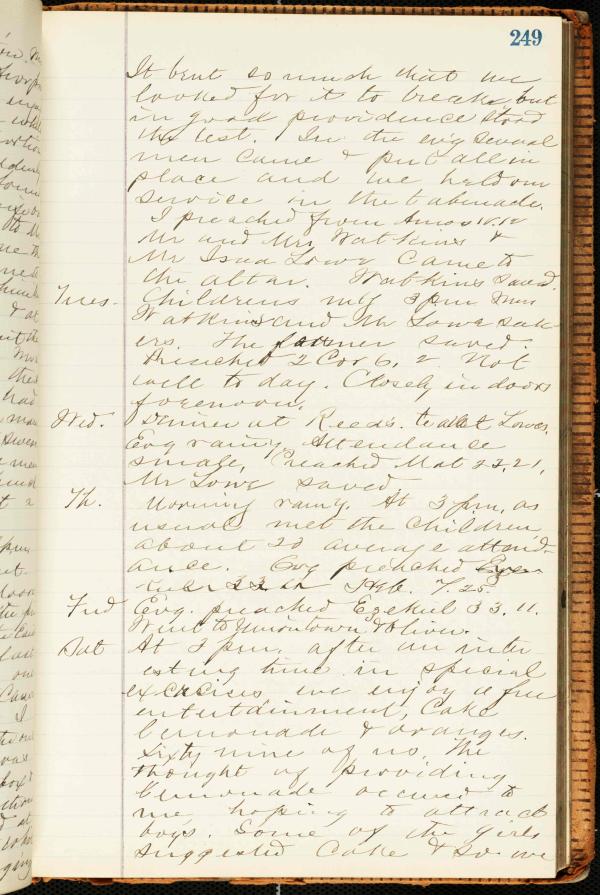 249
It bent so much that we
looked for it to breake, but
in good providence stood
the test. In the ev'g several
men came & put all in
place and we held our
service in the tabernacle.
I preached from Amos
Mr and Mrs Watkins &
Mr Isaa Lowe came to
the altar. Watkins saved.
Tues. Childrens mtg 3 pm Mrs
Watkins and Mr Lowe seek-
ers. The former saved.
Preached 2 Cor 6, 2. Not
well to day. Closely in doors
forenoon.
Wed. Dinner at Reeds. tea at Lowes.
Evg rainy, Attendance
smale, Preached Mat 22.21,
Mr Lowe saved.
Th. Morning rainy. At 3 pm, as
usual met the children,
about 20 average attend-
ance. Evg preached Eze-
Heb. 7.25.
Frid Evg. preached Ezekiel 33. 11.
Went to Uniontown & Oliver.
Sat At 2 pm, after an inter
esting time in special
exercises we enjoy a free
entertainment, Cake
lemonade & oranges.
Sixty nine of us. The
thought of providing
lemonade occured to
me, hoping to attract
boys. Some of the girls
suggested Cake & so we